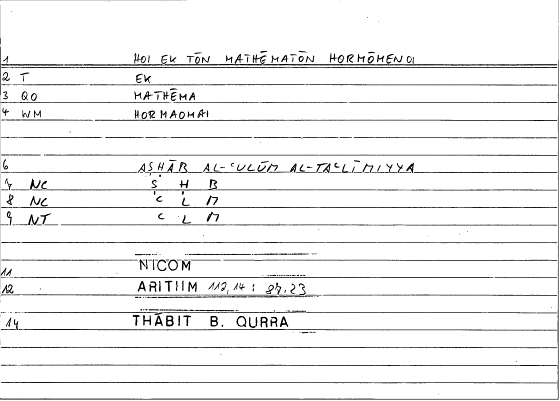 1 HOI EK TŌN MATHĒMATŌN HORMŌMENOI
2 T EK
3 QO MATHĒMA
4 WM HORMAOMAI
6 AṢḤĀB AL-ᶜULŪM AL-TAᶜLĪMIYYA
7 NC Ṣ Ḥ B
8 NC ᶜ L M
9 NT ᶜ L M
11 NICOM
12 ARITIIM 112,14 : 87.23
14 THĀBIT B. QURRA